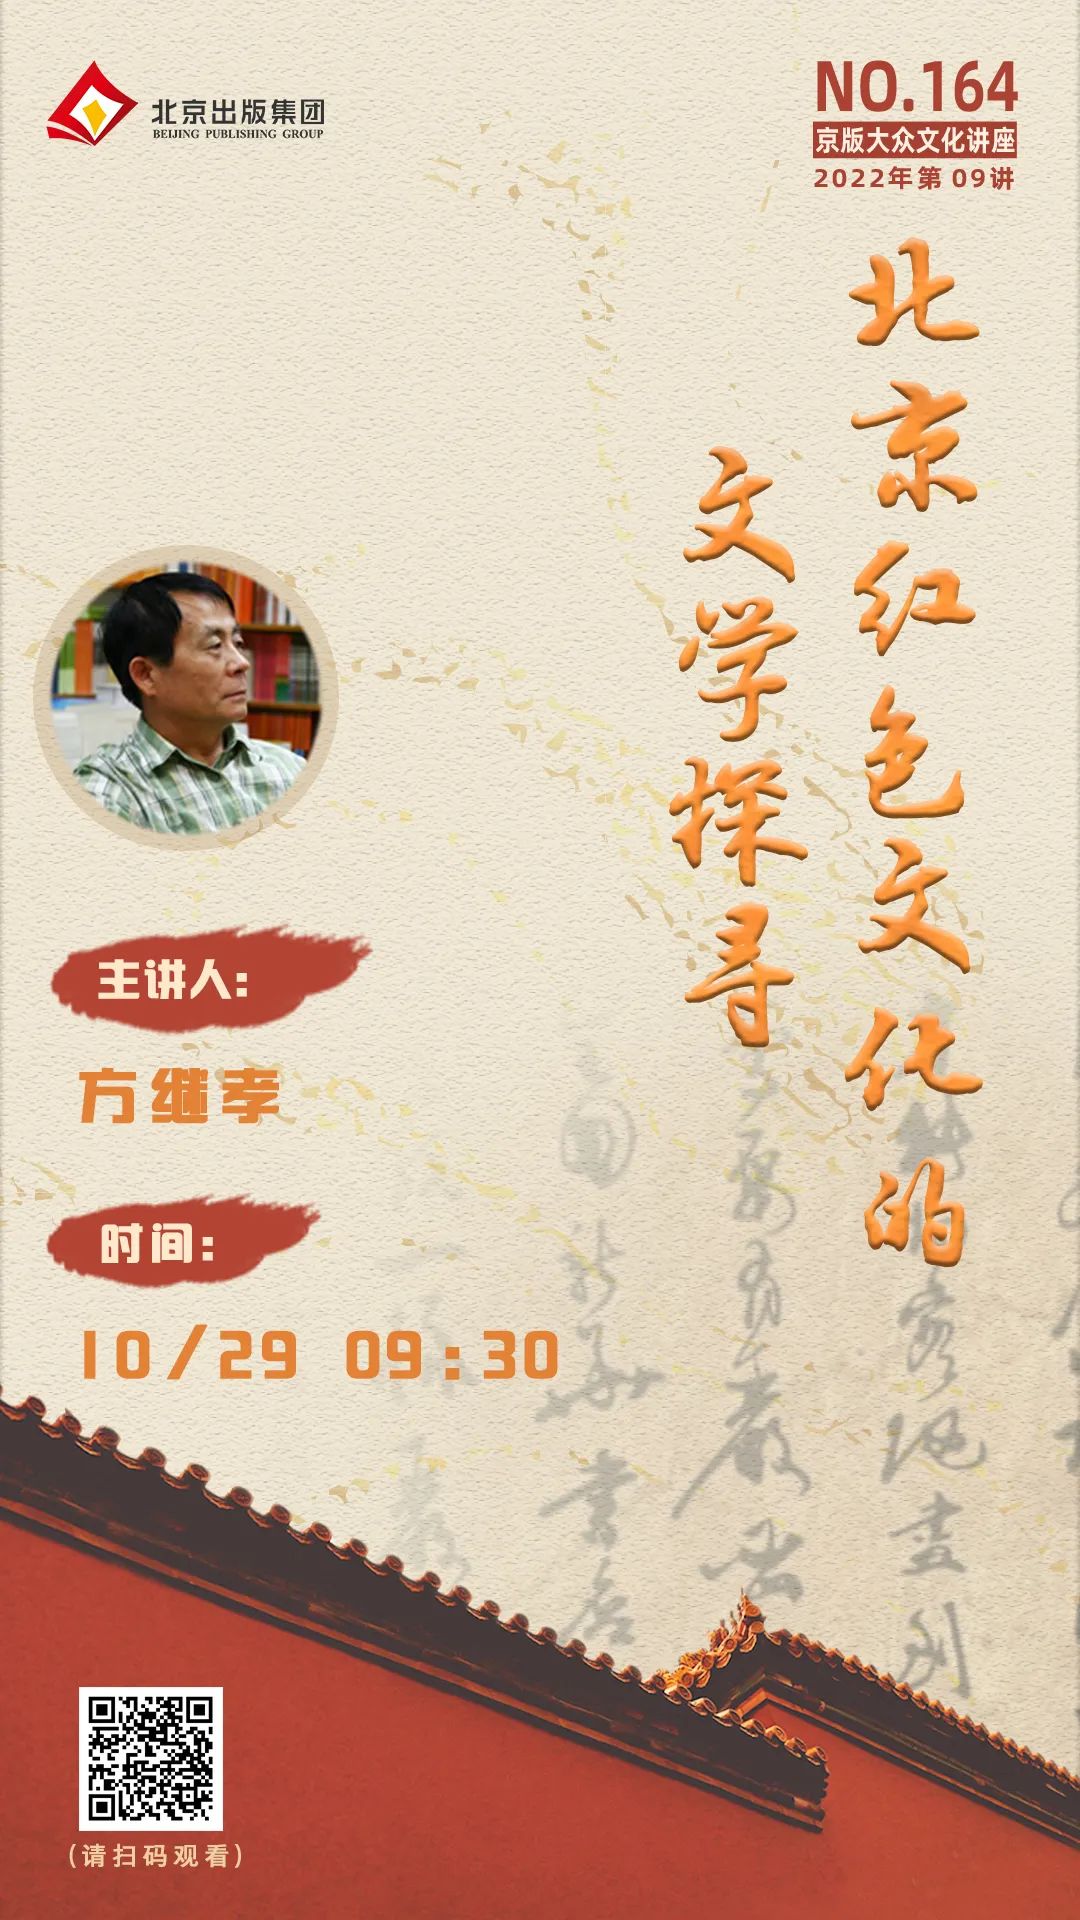 北京出版集团
BEIJING PUBLISHING GROUP
NO.164
京版大众文化讲座
2022年第 09讲
北京红色文化的
文学探寻
主讲人:
方继孝
时间:
10/29 09:30
(请扫码观看)